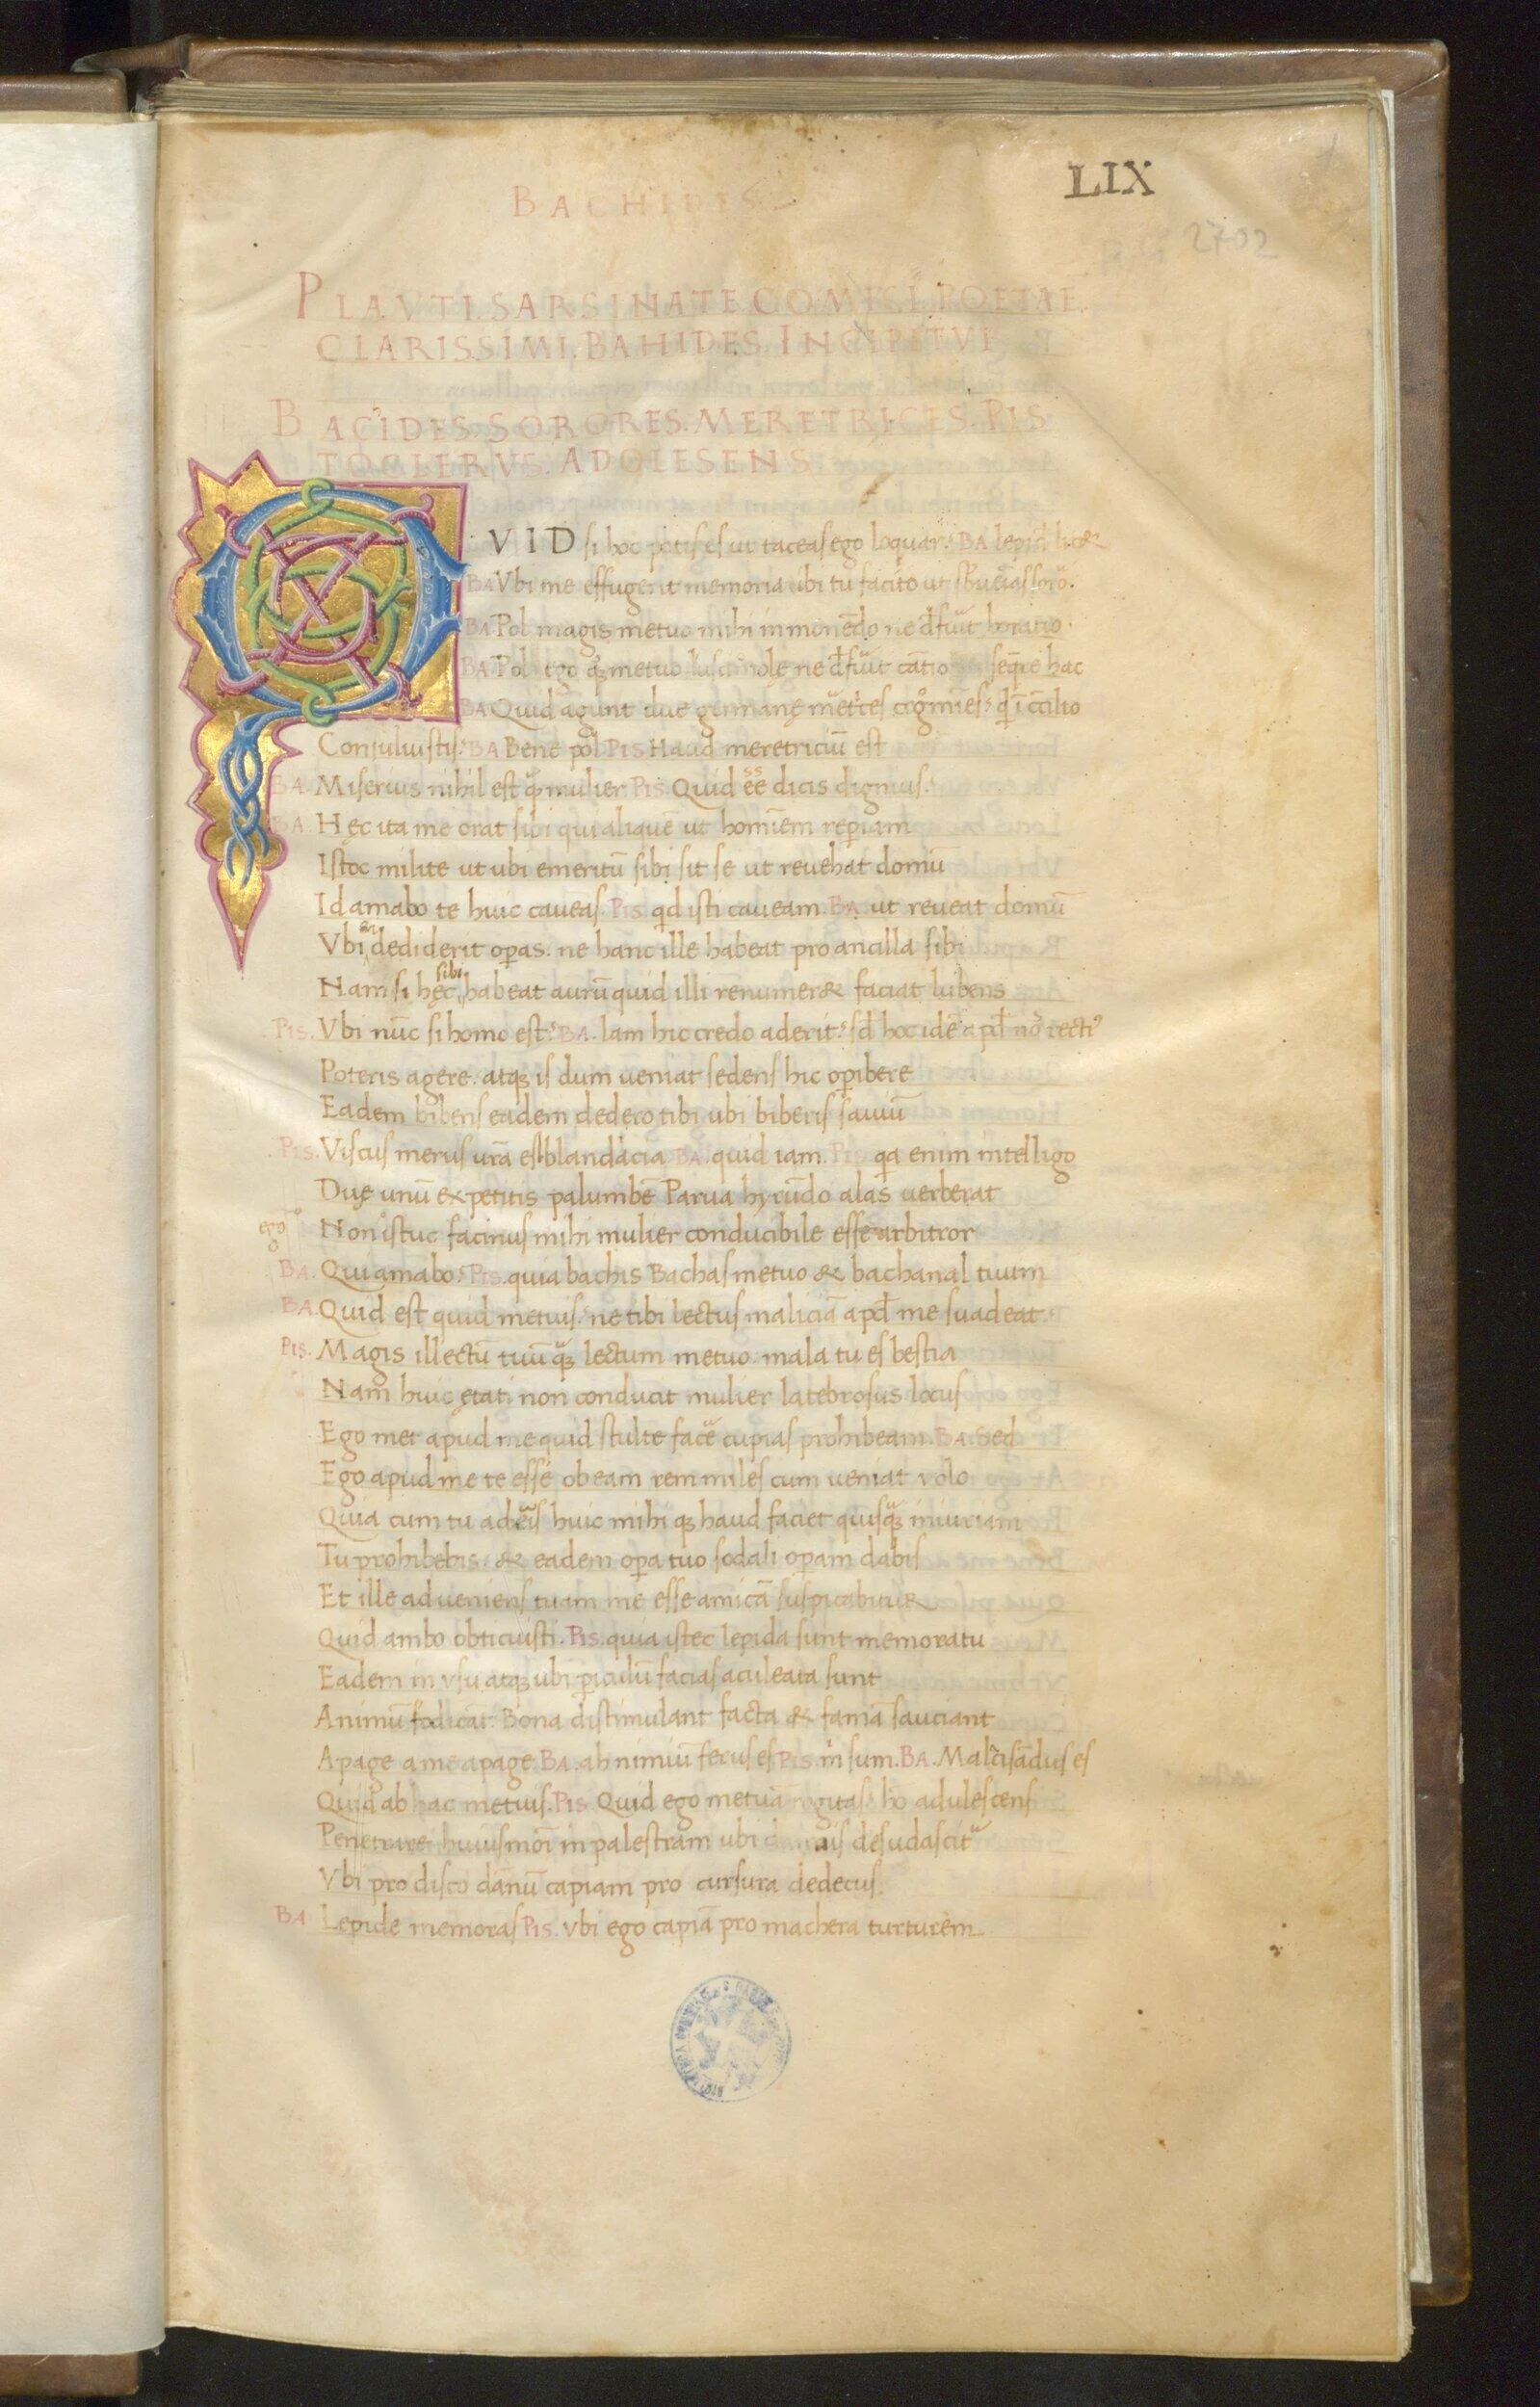 LIX
BACHIDIS
2702
PLAVTI. SARSINATE COMICI. POETAE.
CLARISSIMI. BAHIDES. INCIPITVR
BACIDES. SORORES. MERETRICES. PIS
TOCLERVS. ADOLESENS
QVID si hoc potis es ut taceas ego loquar? BA lepid lic&
BA Vbi me effugerit memoria ibi tu facito ut sbueias soro.
BA Pol magis metuo mihi in monēdo ne d̄fuit
BA. Pol ego q̄ metuo ne d̄fuit cātio seq̄re hac
BA Quid agunt due germanę
Consuluistis? BA Bene pol PIS Haud meretriciū est
BA. Miserius nihil est q̄ mulier PIS. Quid ēē dicis dignius?
BA. Hęc ita me orat sibi qui aliquē ut hominem repiam
Istoc milite ut ubi emeritū sibi sit se ut reuehat domū
Id amabo te huic caueas. PIS. qd isti caueam. BA. ut reueat domū
Vbi dediderit opas. ne hanc ille habeat pro ancilla sibi
Nam si hęc sibi habeat aurū quid illi renumer& faciat lubens
PIS. Vbi nūc si homo est? BA. Iam hic credo aderit? sd hoc idē apd nos recti⁹
Poteris agere. atq; is dum ueniat sedens hic opibere
Eadem bibens eadem dedero tibi ubi biberis sauiū
PIS. Viscus merus urā est blandacia BA. quid iam. PIS qa enim intelligo
Due unū expetitis palumbē Parua hyrūdo alas uerberat
ego Non istuc facinus mihi mulier conducibile esse arbitror
BA. Qui amabo? PIS. quia bachis Bachas metuo & bachanal tuum
BA. Quid est quid metuis? ne tibi lectus maliciā apd me suadeat
PIS. Magis illectū tuū q̄; lectum metuo. mala tu es bestia
Nam huic ętati non conducit mulier latebrosus locus
Ego met apud me quid stulte facē cupias prohibeam. BA. Sed
Ego apud me te esse ob eam rem miles cum ueniat volo
Quia cum tu aderis huic mihi q; haud faciet quisq̄; iniuriam
Tu prohibebis. & eadem opa tuo sodali opam dabis
Et ille adueniens tuam me esse amicā suspicabitur
Quid ambo obticuisti. PIS. quia istec lepida sunt memoratu
Eadem in vsu atq; ubi piculū facias aculeata sunt
Animū fodicāt. Bona distimulant facta & famā sauciant
Apage a me apage BA. ah nimiū ferus es PIS. m̄ sum. BA. Malcisādus es
Quid ab hac metuis. PIS Quid ego metuā rogitas? hō adulescens
Penetrare huiusmōi in palestram ubi desudascit
Vbi pro disco dānū capiam pro cursura dedecus.
BA Lepide memoras PIS. vbi ego capiā pro machera turturem